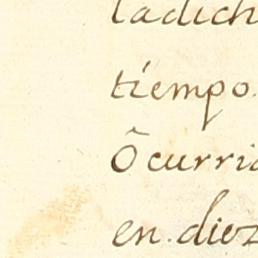 ladich
tiempo.
Õcurria
en diez